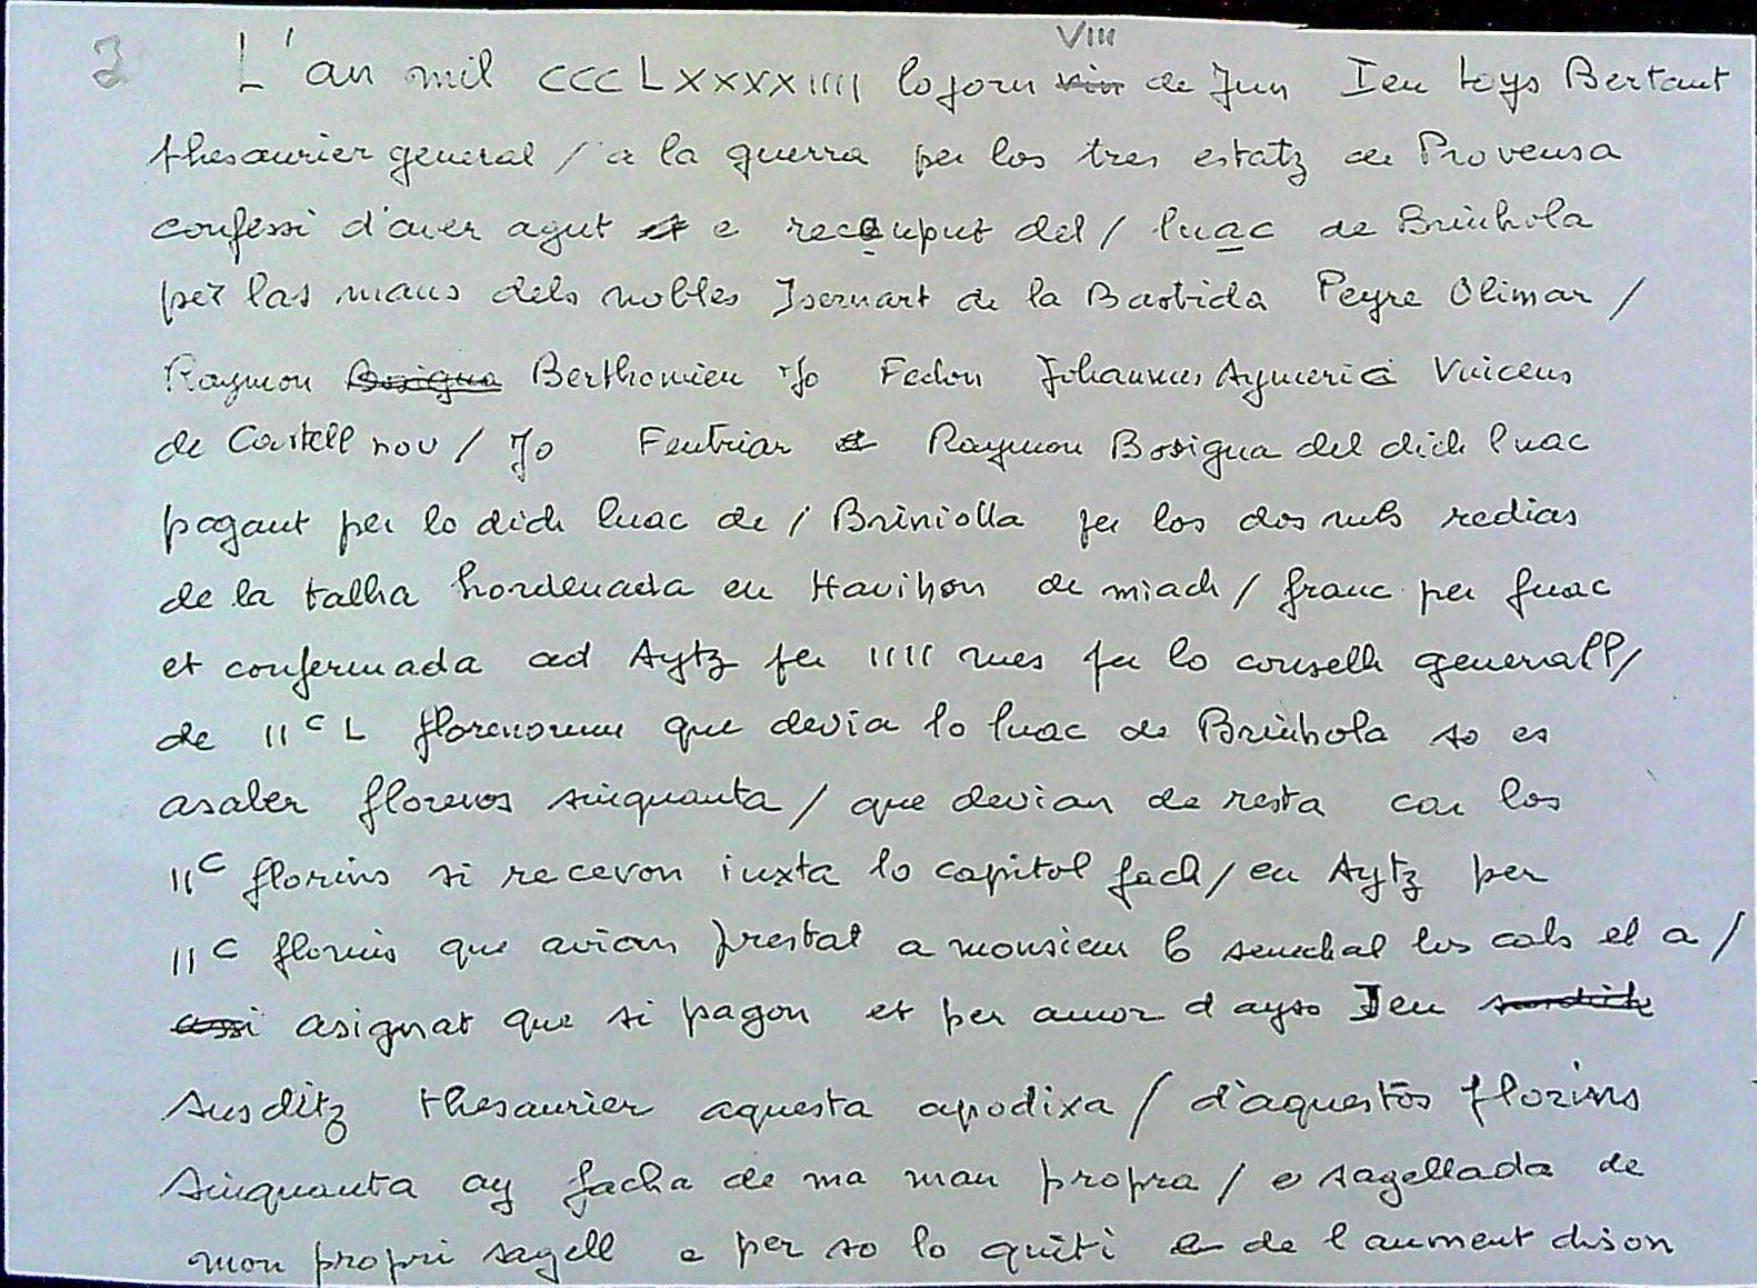 2 L'an mil CCC LXXXXIIII lo jorn <s>viii</s> VIII de Jun Ieu Loys Bertaut
thesaurier general / a la guerra per los tres estatz de Provensa
confessi d'aver agut <s>et</s> e receuput del / luac de Brinhola
per las mans dels nobles Isernart de la Bastida Peyre Olimar /
Raymon <s>Bosigua</s> Berthomieu Jo Fedon Johannes Aymeric Vincens
de Castell nou / Jo Fentriar <s>et</s> Raymon Bosigua del dich luac
pagant per lo dich luac de / Briniolla per los dos redias
de la talha hordenada en Havihon de miach / franc per fuac
et confermada ad Aytz per IIII mes per lo conselh generall /
de IIC L florenorum que devia lo luac de Brinhola so es
asaber florenos sinquanta / que devian de resta car los
IIC florins si recevon iuxta lo capitol fach / en Aytz per
IIC florins que avian prestat a monsieur lo senechal los cals el a /
<s>assi</s> asignat que si pagon et per amor d ayso Ieu <s>susdich</s>
susditz thesaurier aquesta apodixa / d'aquestos florins
sinquanta ay facha de ma man propra / e sagellada de
mon propri sagell e per so lo quiti de l aument dison